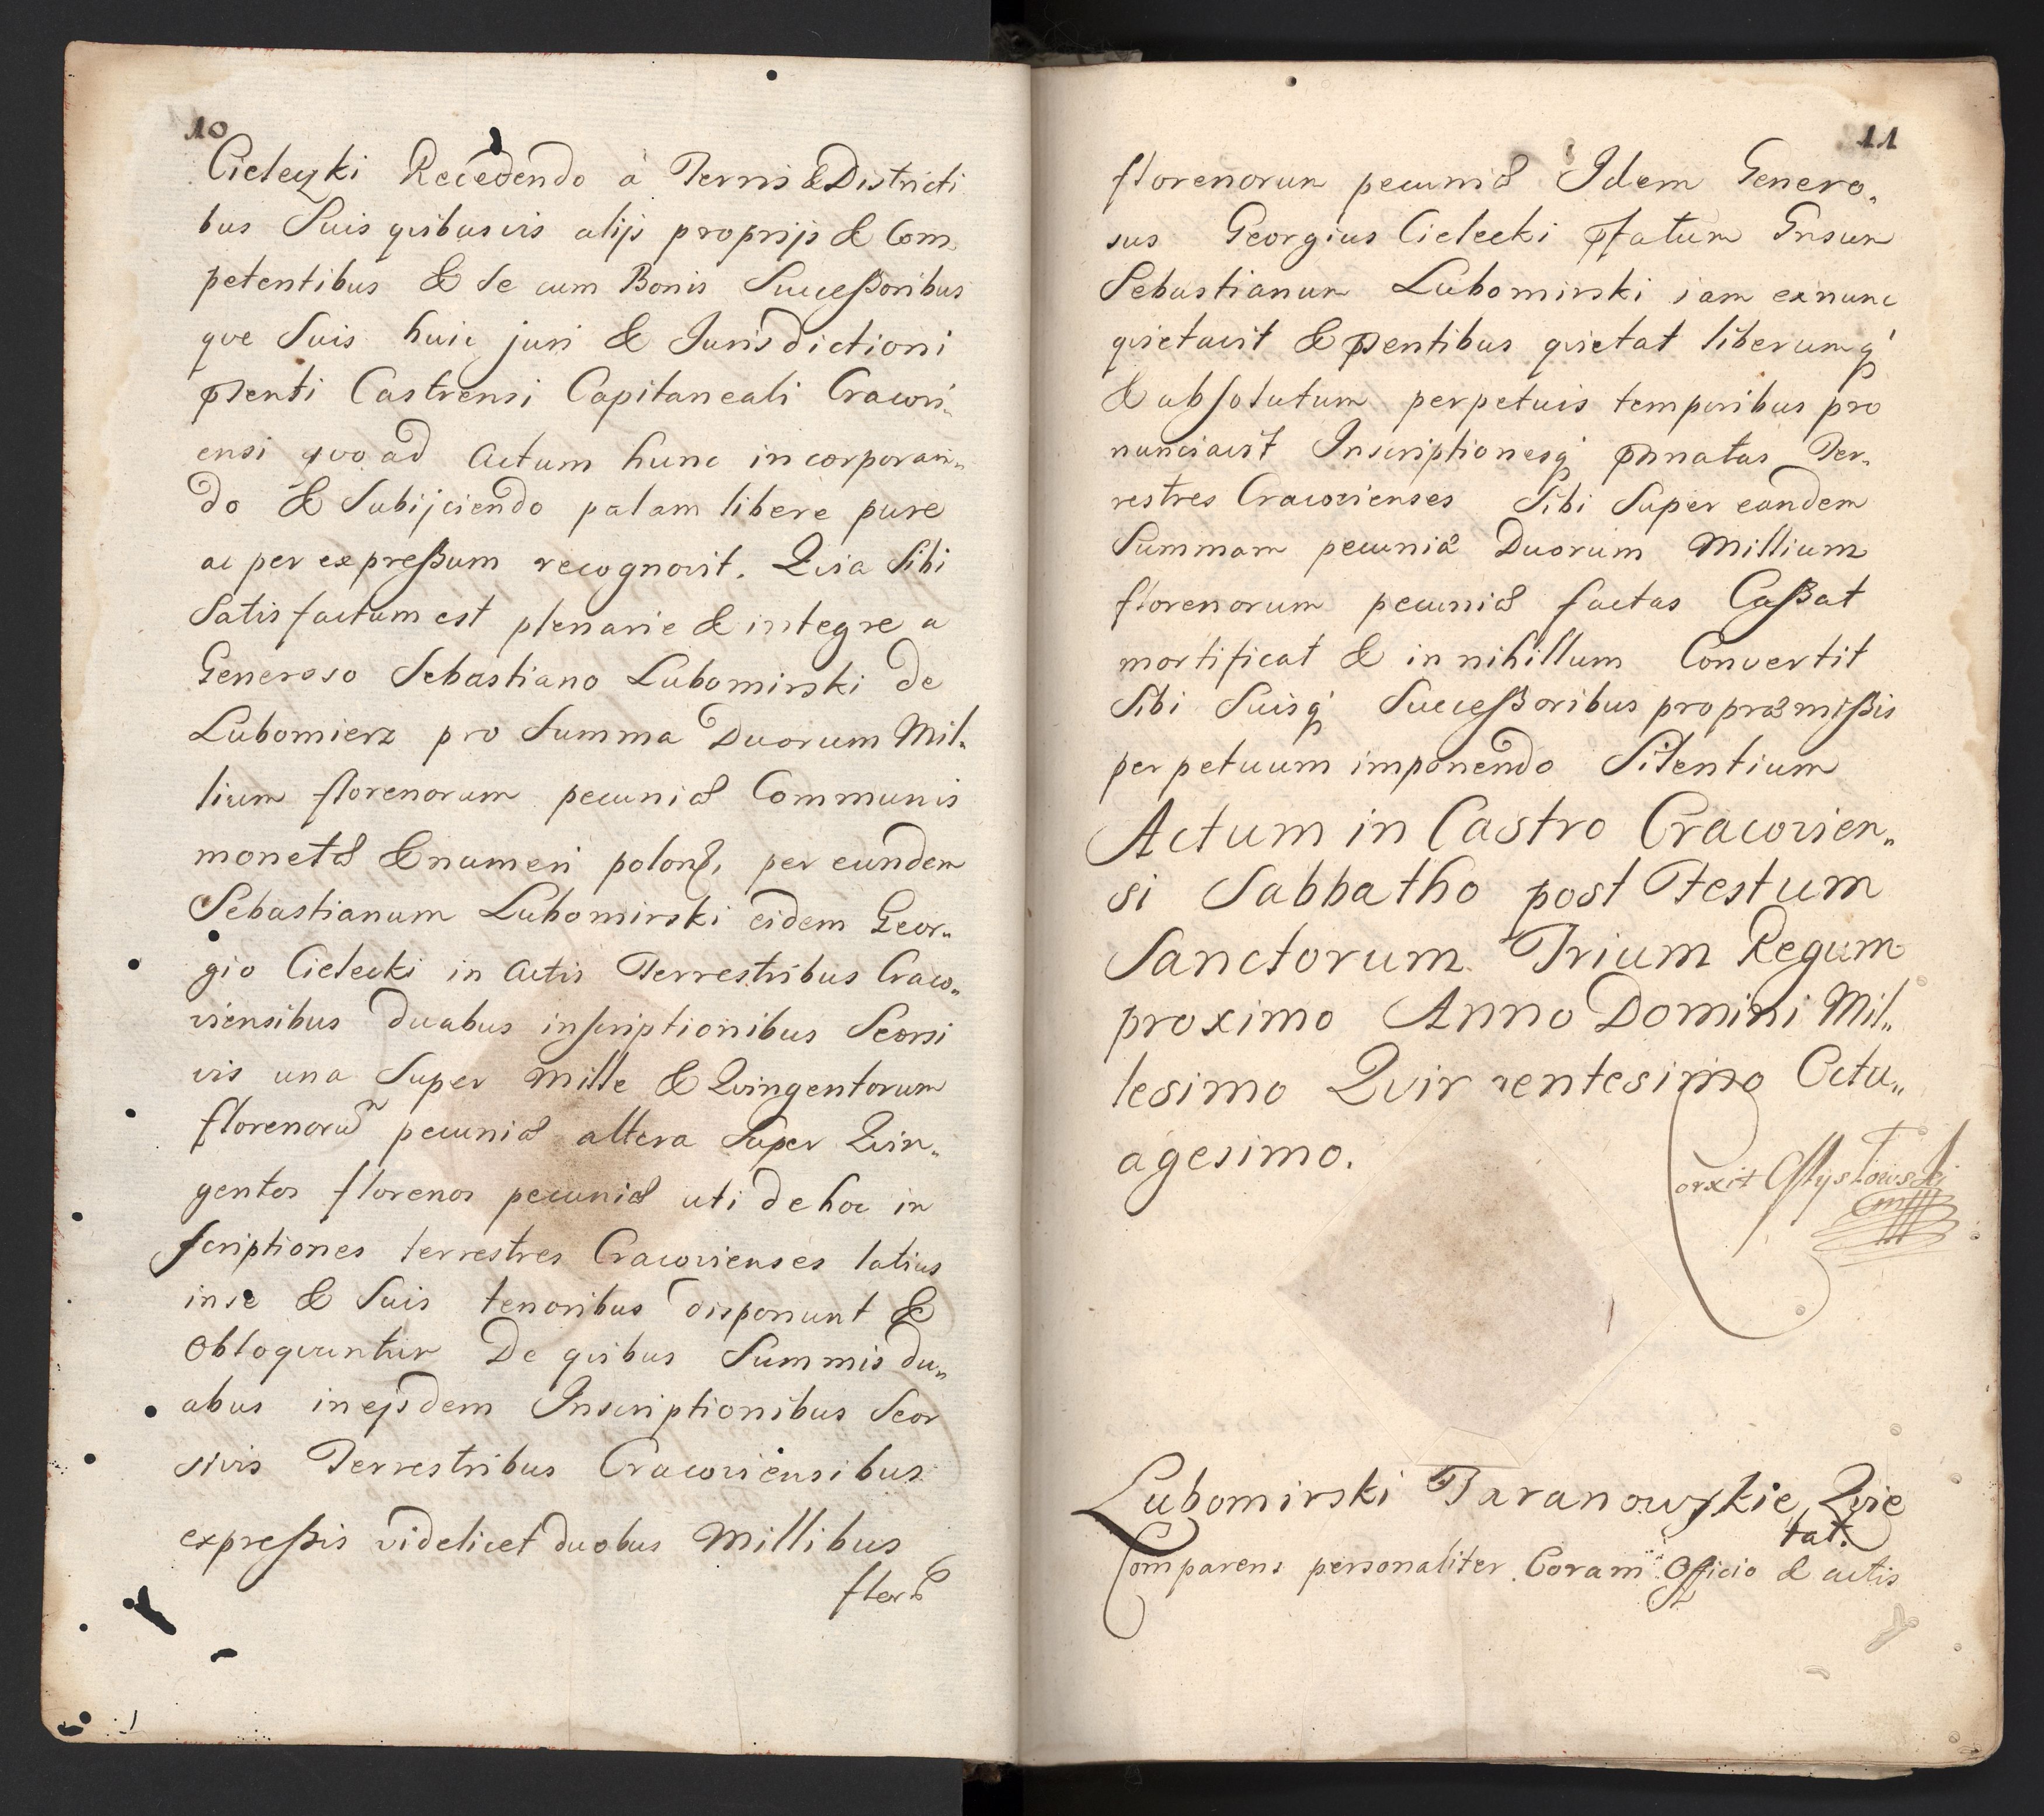 10
Cieleczki Recedendo à Terris & Districti
bus Suis quibusvis alijs proprijs & Com
petentibus & Se cum Bonis Succeßoribus
que Suis huic juri & Jurisdictioni
pnsenti Castrensi Capitaneali Cracovi„
ensi quo ad Actum hunc incorporan„
do & Subijciendo palam libere pure
ac per expreßum recognovit. Quia Sibi
Satisfactum est plenarie & integre a
Generoso Sebastiano Lubomirski de
Lubomierz pro Summa Duorum Mil„
lium florenorum pecuniæ Communis
monetæ & numeri polon, per eundem
Sebastianum Lubomirski eidem Geor„
gio Cielecki in Actis Terrestribus Craco„
viensibus duabus inscriptionibus Seorsi
vis una Super Mille & Quingentorum
florenorũ pecuniæ altera Super Quin„
gentos florenos pecuniæ uti de hoc in
scriptiones terrestres Cracovienses latius
in se & Suis tenoribus disponunt &
Obloquuntur De quibus Summis du„
abus in ejsdem Inscriptionibus Seor
sivis Terrestribus Cracoviensibus
expreßis videlicet duobus Millibus
flor
11
florenorum pecuniæ Idem Genero„
sus Georgius Cielecki pfatum Gnsum
Sebastianum Lubomirski iam exnunc
quietavit & pnsentibus quietat liberumq'
& absolutum perpetuis temporibus pro
nunciavit Inscriptionesq' pnnatas Ter„
restres Cracovienses Sibi Super eandem
Summam pecuniæ Duorum Millium
florenorum pecuniæ factas Caßat
mortificat & in nihillum Convertit
Sibi Suisq' Succeßoribus pro præmißis
perpetuum imponendo Silentium
Actum in Castro Cracovien„
si Sabbatho post Festum
Sanctorum Trium Regum
proximo Anno Domini Mil„
lesimo Quingentesimo Octu„
agesimo.
Lubomirski Baranowskie, Quie
tat.
Comparens personaliter Coram Officio & actis